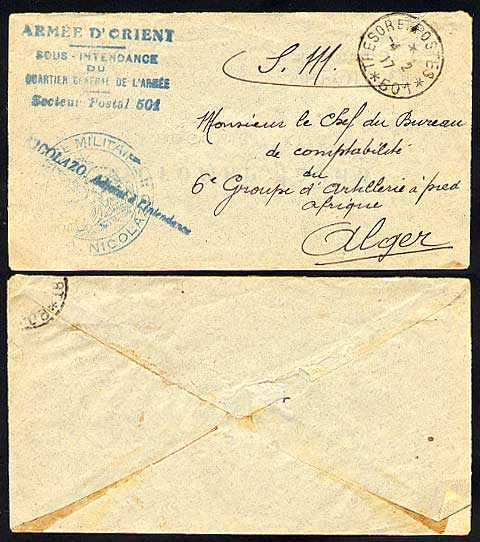 ARMÉE D'ORIENT
SOUS-INTENDANCE
DU
QUARTIER GÉNÉRAL DE L'ARMÉE
Secteur Postal 501
TRESOR ET POSTES
* 2
4
17
* 501 *
S. M.
Monsieur le Chef du Bureau
de comptabilité
du
6e Groupe d'Artillerie à pied
afrique
Alger
MILITAIRE
NICOLAZO, Adjoint à l'Intendance
NICOLAZO